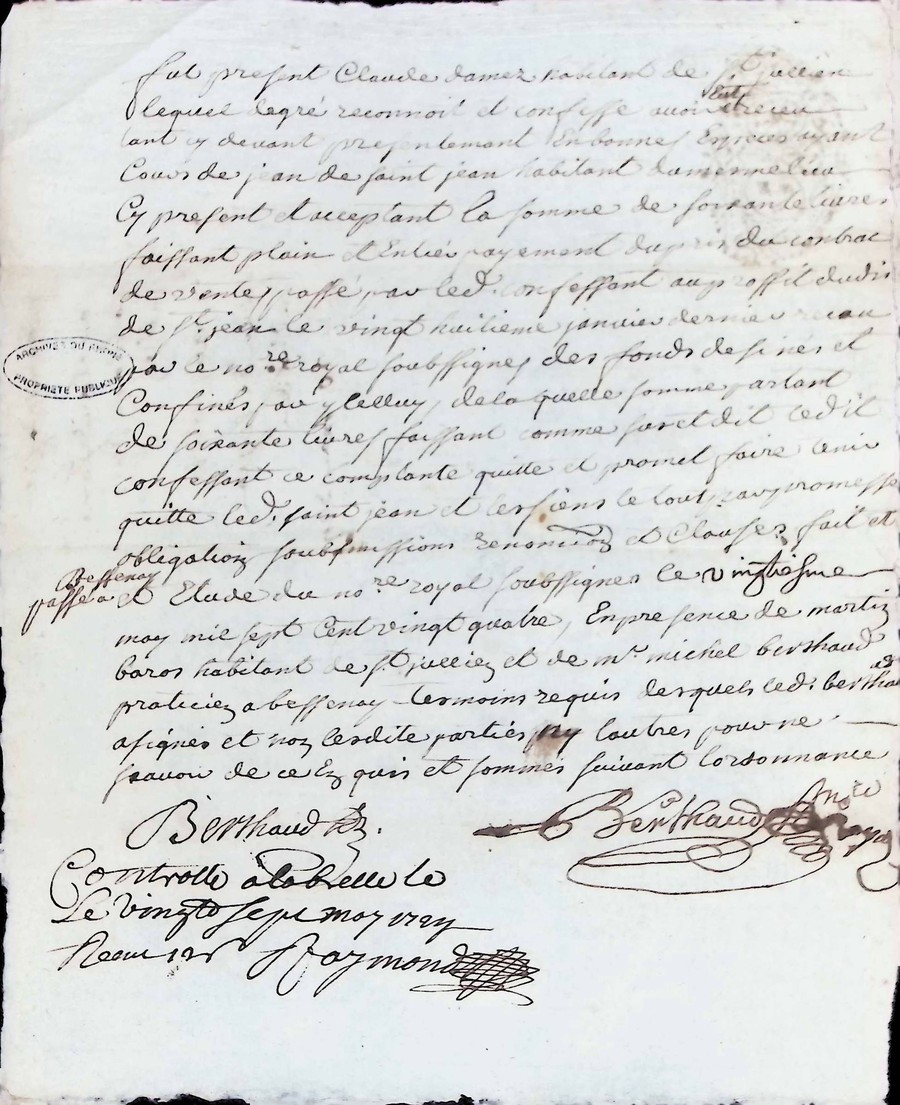 fut present Claude damez habitant de St jullien
lequel degré reconnoit et confesse avoir Eut et receu
tant cy devant presentemant En bonnes Espesses ayant
Cours de jean de saint jean habitant
Cy present et acceptant la somme de soixante livres
faissant plain et Entier payement du pris du contrac
de ventes passé par led. confessant au proffit dudit
de St jean le vingt huitieme janvier dernier receu
par le nore royal soubssignes des fonds desinés et
Confinés par ycelluy, de la quelle somme partant
de soixante livres faissant comme suret dit ledit
confessant ce comptante quitte et promet faire tenir
quitte led. saint jean et les siens le tout par promesse
obligation soubsmissions renonciaõn et Clauses fait et
Bessenay
passé a
et Etude du nore royal soubssignes le vingtiesme
may mil sept Cent vingt quatre, En presence de martin
baros habitant de St jullien et de mr. michel berthaud
praticien a bessenay tesmoins requis desquels led. berthaud
a signés et non lesdite parties ny lautres pour ne
scavoir de ce Enquis et sommés suivant lordonnance
Berthaud
Berthaud Nore
Royal
Controlle à la brelle le
Le vingt sept may 1724
Receu 12s Raymond
ARCHIVES DU RHÔNE
PROPRIETE PUBLIQUE